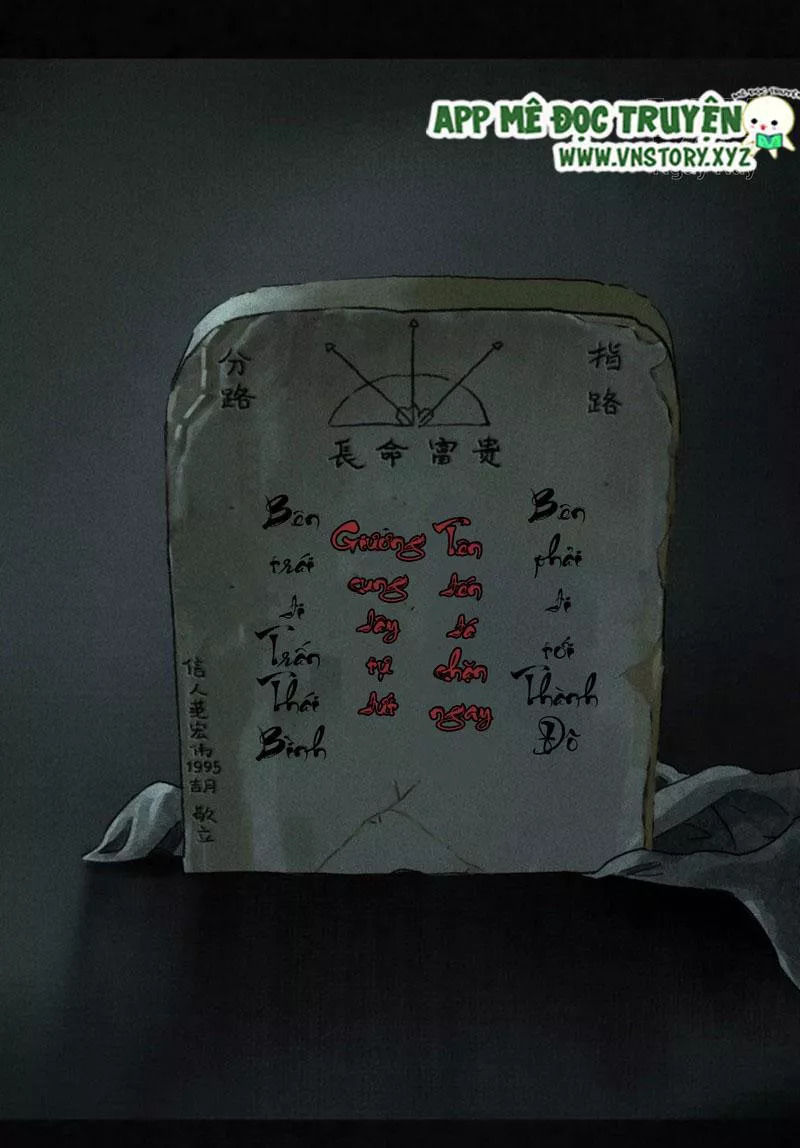 MÊ ĐỌC TRUYỆN
APP MÊ ĐỌC TRUYỆN
WWW.VNSTORY.XYZ
分路
指路
長命富貴
Bên trái đi Trấn Thái Bình
Giương cung dây tự đứt
Tên đến đá chặn ngay
Bên phải đi tới Thành Đô
信人 宏伟1995 胡 敬立